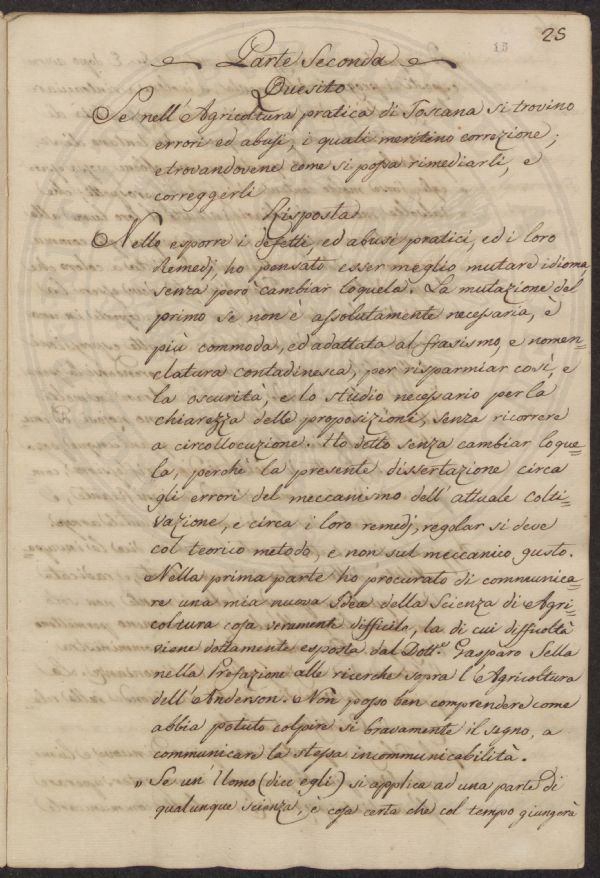 15 25
Parte Seconda
Quesito
Se nell'Agricoltura pratica di Toscana si trovino
errori ed abusi, i quali meritino correzione;
e trovandovene come si possa rimediarli, e
correggerli
Risposta
Nello esporre i defetti, ed abusi pratici, ed i loro
Remedj, ho pensato esser meglio mutare idioma,
senza però cambiar loquela. La mutazione del
primo se non è assolutamente necessaria, è
più commoda, ed adattata al frasismo, e nomen=
clatura contadinesca, per risparmiar così, e
la oscurità, e lo studio necessario per la
chiarezza delle proposizioni, senza ricorrere
a circollocuzione. Ho detto senza cambiar loque=
la, perchè la presente dissertazione circa
gli errori del meccanismo dell'attuale colti=
vazione, e circa i loro remedj, regolar si deve
col teorico metodo, e non sul meccanico gusto.
Nella prima parte ho procurato di communica=
re una mia nuova Idea della Scienza di Agri=
coltura cosa veramente difficile, la di cui difficoltà
viene dottamente esposta dal Dott.e Gasparo Sella
nella Prefazione alle ricerche sopra l'Agricoltura
dell'Anderson. Non posso ben comprendere come
abbia potuto colpire si bravamente il segno, a
communicare la stessa incommunicabilità.
„ Se un Uomo (dice egli) si applica ad una parte di
qualunque scienza, è cosa certa che col tempo giungerà